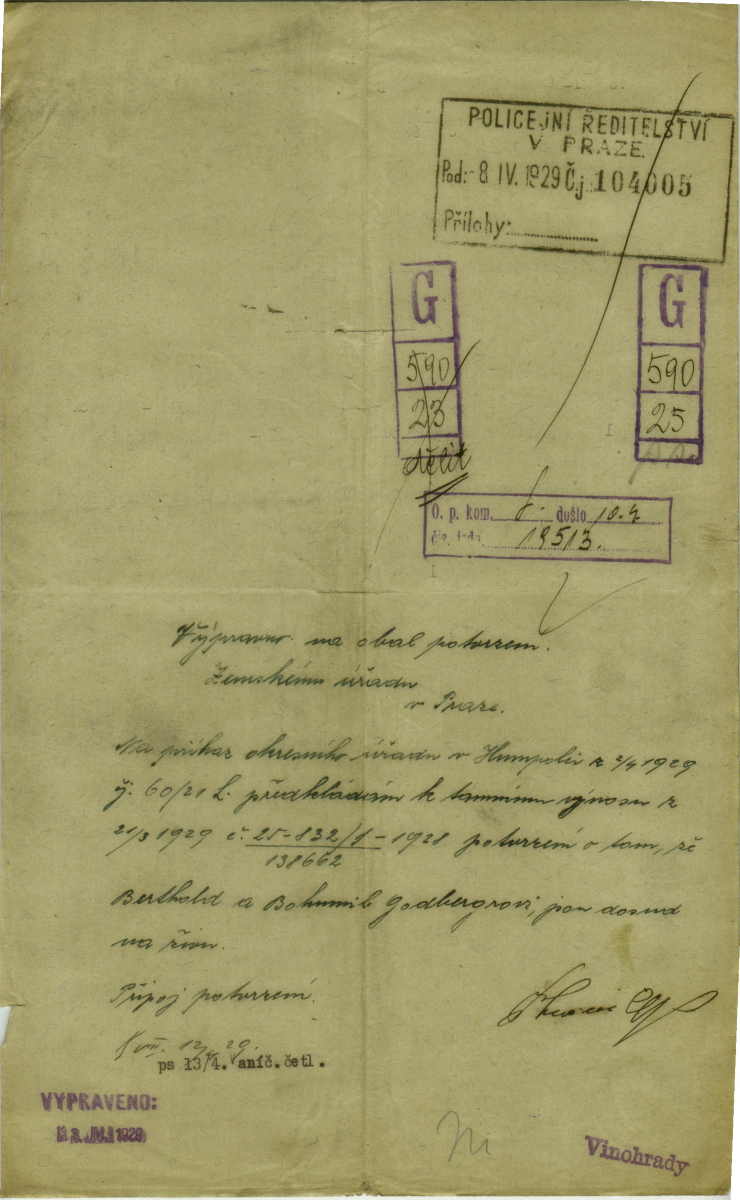 POLICEJNÍ ŘEDITELSTVÍ
V PRAZE.
Pod: -8 IV. 1929 Č.j. 104005
Přílohy:
G
590
23
dělit
G
590
25
O. p. kom. došlo 10.4
19513.
na obal potvrzení.
Zemskému úřadu
v Praze.
Na příkaz okresního úřadu v Humpolci z 2/4 1929
60/21 předkládám k tamnímu výnosu z
21/3 1929 č. 25-832/1-1928 potvrzení o tom, že
138662
Berthold a Bohumil Godbergrovi, jsou dosud
na živu.
Připoj potvrzení.
VIII. 12/4 29.
ps 13/4. aníč.četl.
VYPRAVENO:
1929
Vinohrady